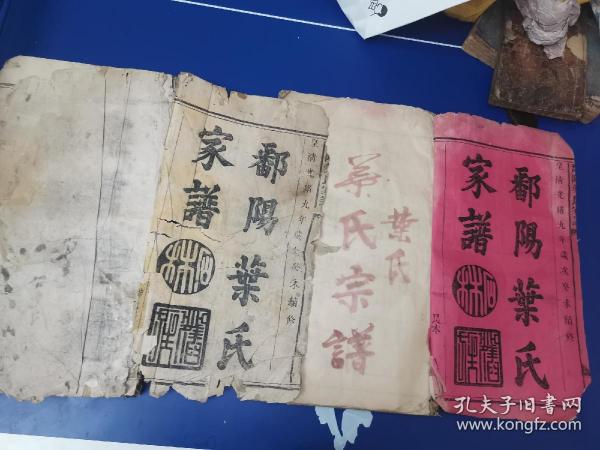 皇清光緒九年歲次癸未續修
鄱陽葉氏
家譜
葉氏
葉氏宗譜
皇清光緒九年歲次癸未續修
鄱陽葉氏
家譜
孔夫子旧书网
www.kongfz.com